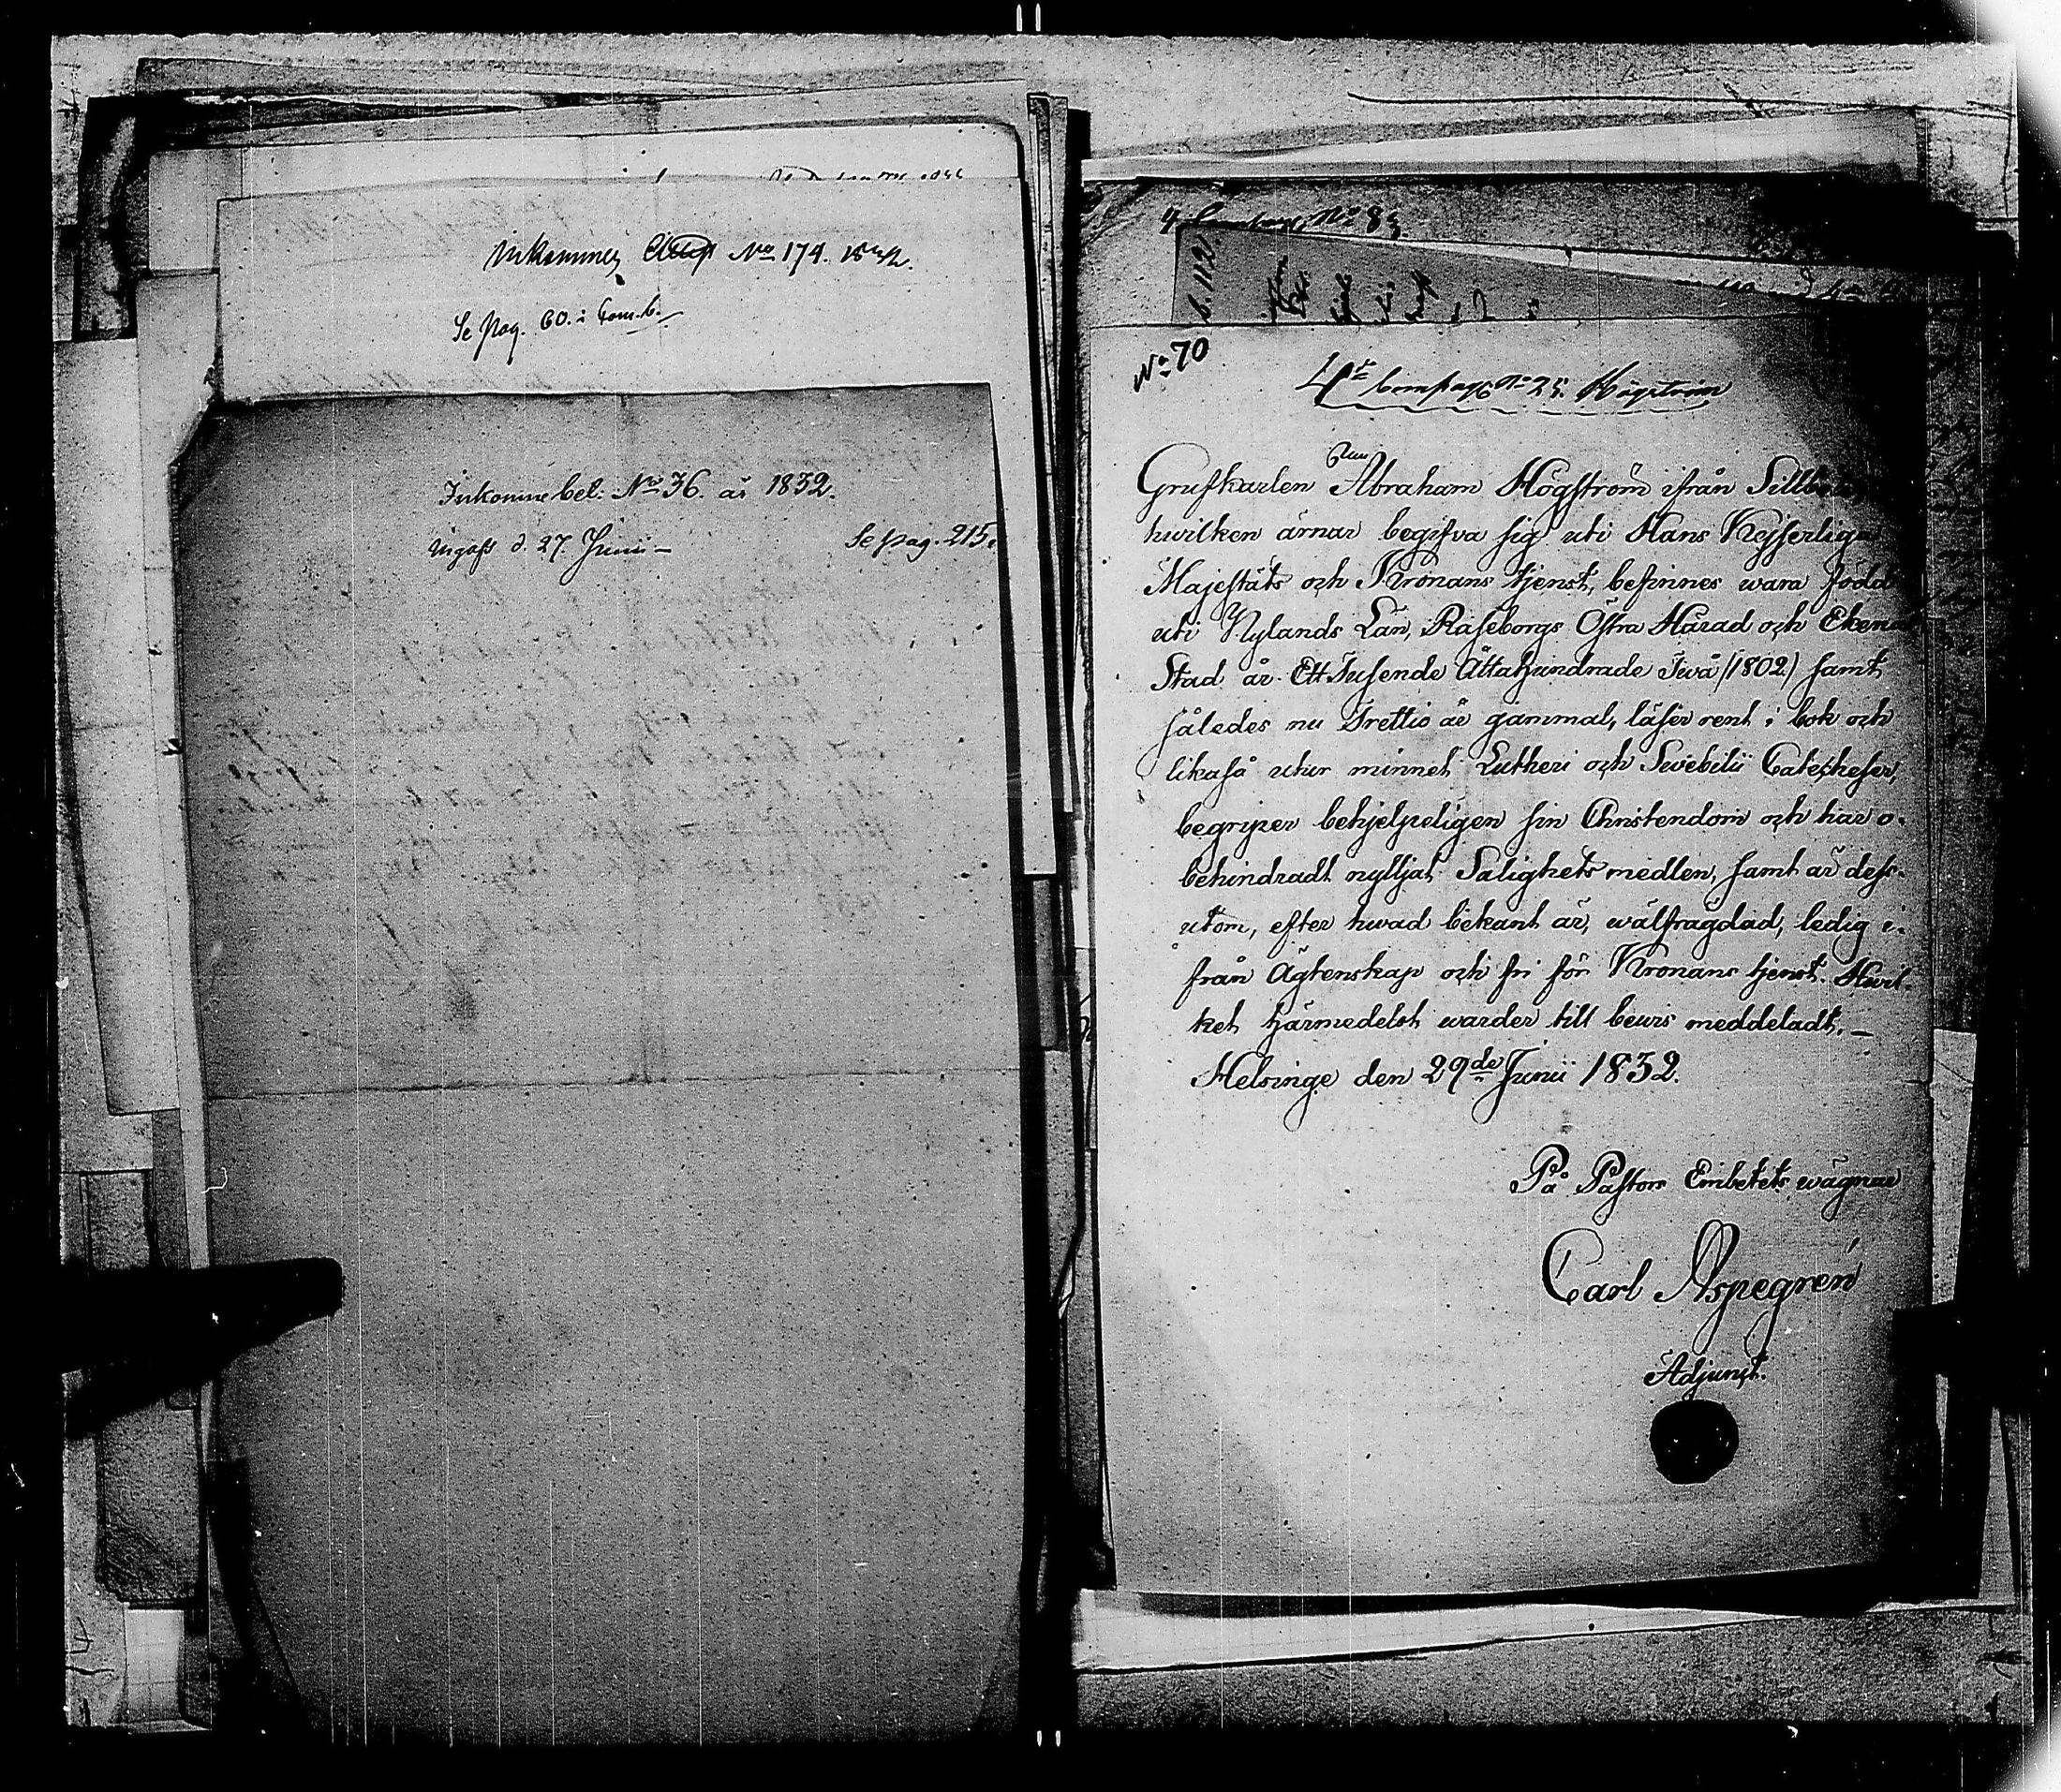 Inkommen No 174. 1832.
Se pag. 60. i tom. 6.
Inkomne bel. No 36. år 1832.
ingafs d. 27. Junii —
Se pag. 215.
No 8
No 70
4de Comp. No 25. Högström
Grufkarlen Abraham Högström ifrån
hvilken ärnar begifva sig uti Hans Kejserliga
Majestäts och Kronans tjenst, befinnes wara född
uti Nylands Län, Raseborgs Östra Härad och
Stad år Ett Tusende Åttahundrade Twå /1802/ samt
således nu Trettio år gammal, läser rent i bok och
likaså utur minnet Lutheri och Swebilii Catecheser,
begriper behjelpeligen sin Christendom och har o-
behindradt nyttjat Salighets medlen, samt är dess-
utom, efter hwad bekant är, wälfrägdad, ledig i-
från Ägtenskap och fri för Kronans tjenst. Hwil-
ket härmedelst warder till bewis meddeladt. —
Helsinge den 29de Junii 1832.
På Pastors Embetets wägnar
Carl Aspegren
Adjunct.